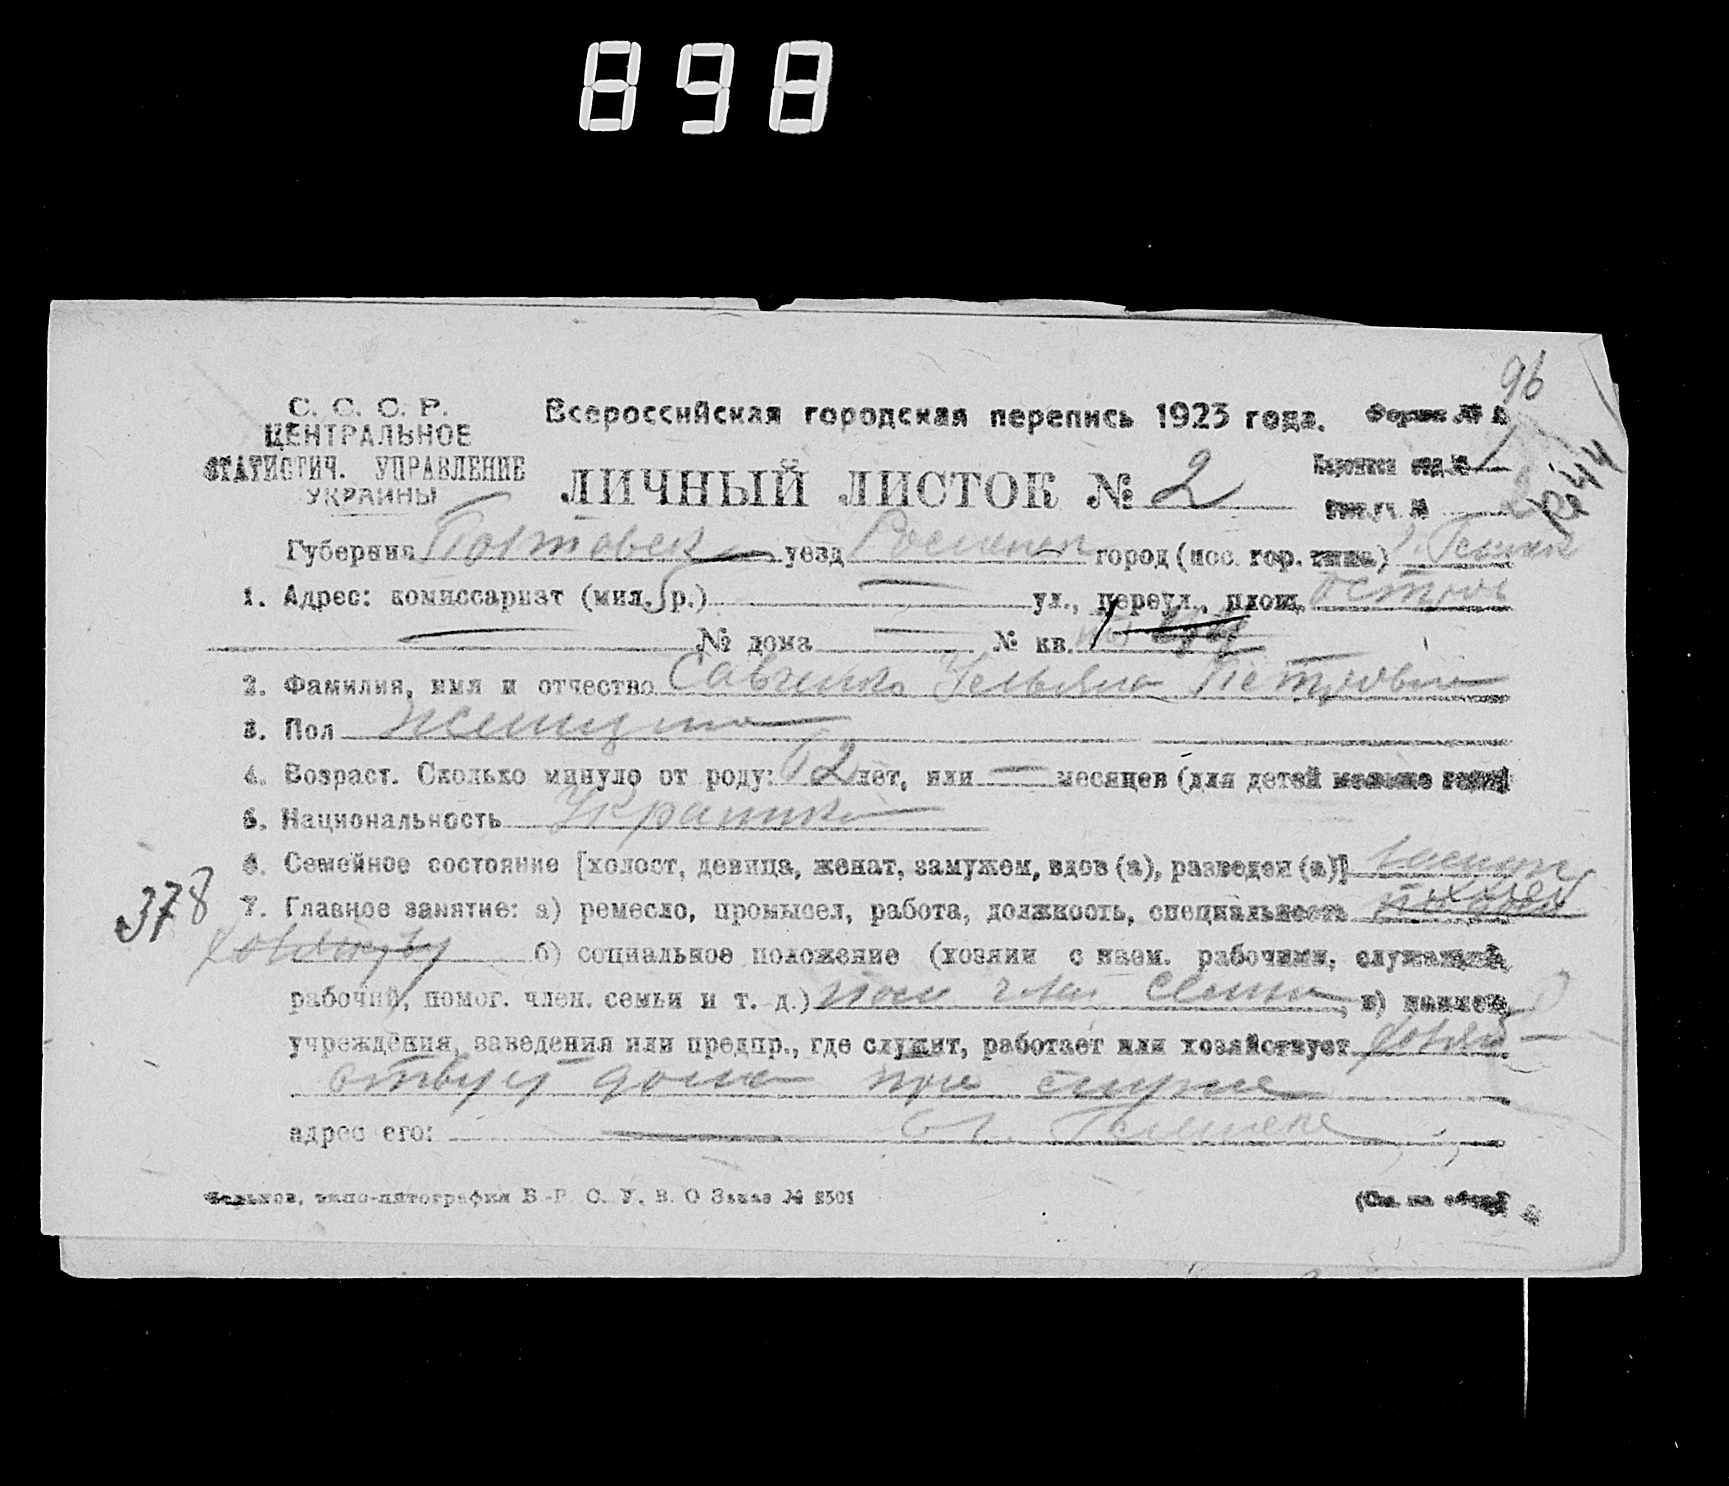 898
96
С. С. С. Р.
ЦЕНТРАЛЬНОЕ
СТАТИСТИЧ. УПРАВЛЕНИЕ
УКРАИНЫ
Всероссийская городская перепись 1923 года. Форма № А
ЛИЧНЫЙ ЛИСТОК № 2
Губерния Полтовск уезд город (пос. гор. типа)
1. Адрес: комиссариат (мил. р.) ул., переул., площ. остров
№ дома № кв.
2. Фамилия, имя и отчество Савченко Ульяна Петровна
3. Пол Женщина
4. Возраст. Сколько минуло от роду: лет, или — месяцев (для детей моложе года)
5. Национальность Украинка
6. Семейное состояние [холост, девица, женат, замужем, вдов (а), разведен (а)]
378
7. Главное занятие: а) ремесло, промысел, работа, должность, специальность
б) социальное положение (хозяин с наем. рабочими, служащий,
рабочий, помог. член. семьи и т. д.) пом член семьи, в) наимен.
учреждения, заведения или предпр., где служит, работает или хозяйствует хозяй-
ствует дома при муже
адрес его:
Харьков, типо-литография В.-Р. С. У. В. О Заказ № 2501
(См. на обор.)